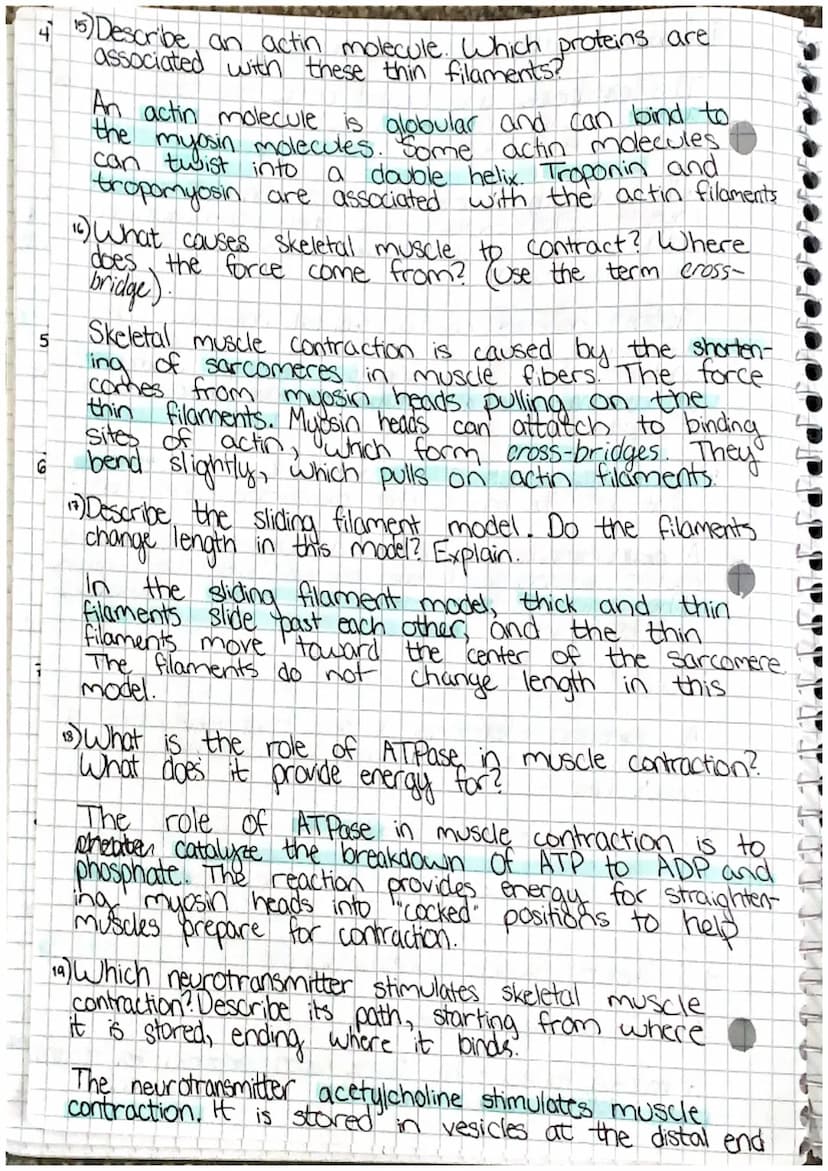 4 15) Describe an actin molecule. Which proteins are
associated with these thin filaments?
An actin molecule is globular and can bind to
the myosin molecules. Some actin molecules
can twist into a double helix. Troponin and
tropomyosin are associated with the actin filaments
16) What causes skeletal muscle to contract? Where
does the force come from? (Use the term cross-
bridge).
5 Skeletal muscle contraction is caused by the shorten-
ing of sarcomeres in muscle fibers. The force
comes from myosin heads pulling on the
thin filaments. Myosin heads can attatch to binding
sites of actin, which form cross-bridges. They
6 bend slightly, which pulls on actin filaments.
17) Describe the sliding filament model. Do the filaments
change length in this model? Explain.
In the sliding filament model, thick and thin
filaments slide past each other, and the thin
filaments move toward the center of the sarcomere
The filaments do not change length in this
model.
18) What is the role of ATPase in muscle contraction?
What does it provide energy for?
The role of ATPase in muscle contraction is to
catalyze the breakdown of ATP to ADP and
phosphate. The reaction provides energy for straighten-
ing myosin heads into "cocked" positions to help
muscles prepare for contraction.
19) Which neurotransmitter stimulates skeletal muscle
contraction? Describe its path, starting from where
it is stored, ending where it binds.
The neurotransmitter acetylcholine stimulates muscle
contraction. It is stored in vesicles at the distal end